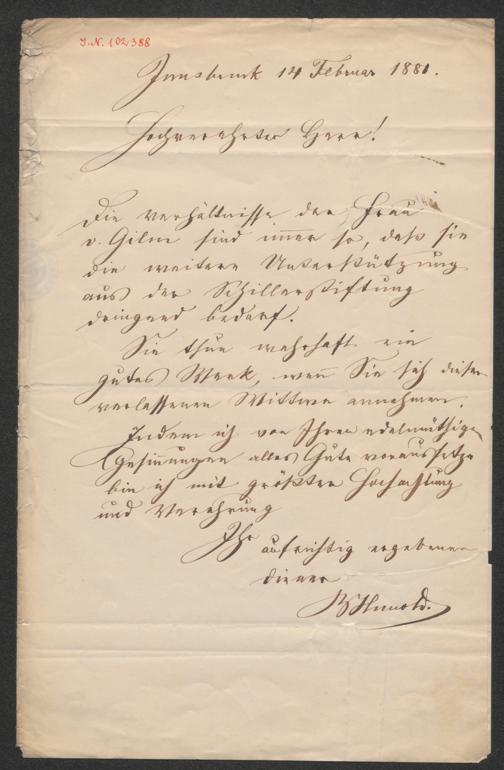 I.N. 102388
Innsbruck 14 Februar 1881.
Hochverehrter Herr!
Die Verhältnisse der Frau
v. Gilm sind im̄er so, daß sie
die weitere Unterstützung
aus der Schillerstiftung
dringend bedarf.
Sie thun wahrhaft ein
gutes Werk, wen̄ Sie sich dieser
verlassenen Wittwe annehmen.
Indem ich von Ihren edelmüthigen
Gesinnungen alles Gute voraussetze
bin ich mit größter Hochachtung
und Verehrung
Ihr
aufrichtig ergebener
Diener